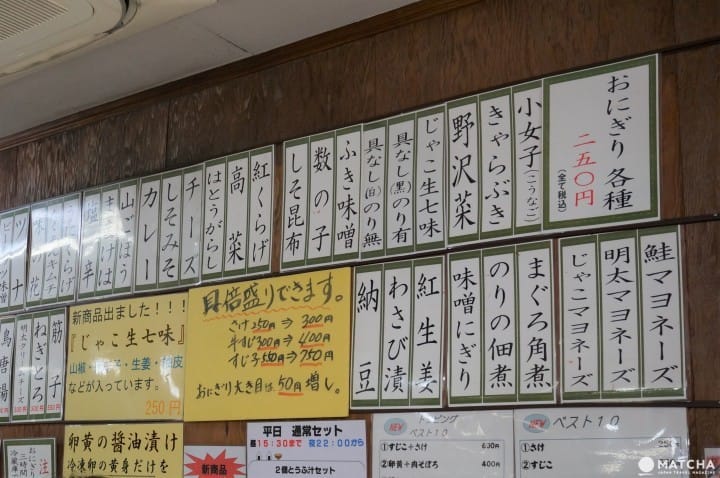 おにぎり 各種
二五〇円
(全て税込)
小女子(こうなご)
きゃらぶき
野沢菜
じゃこ生七味
具なし(黒)のり有
具なし(白)のり無
ふき味噌
数の子
しそ昆布
紅くらげ
高菜
はとうがらし
チーズ
しそみそ
カレー
山ごぼう
鮭マヨネーズ
明太マヨネーズ
じゃこマヨネーズ
まぐろ角煮
のりの佃煮
味噌にぎり
紅生姜
わさび漬
納豆
具倍盛りできます。
さけ250円⇒300円
牛すじ300円⇒400円
すじ子550円⇒750円
おにぎり大き目は50円増し。
新商品出ました!!!
『じゃこ生七味』
などが入っています。
250円
筋子
ねぎとろ
明太クリームチーズ
卵黄の醤油漬け
冷凍卵の黄身だけを
新商品
平日 通常セット
昼15:30まで 夜22:00から
2個とうふ汁セット
NEW
トッピング
ベスト10
①すじこ+さけ 630円
②卵黄+肉そぼろ 400円
NEW
ベスト10
①さけ
②すじこ
注
おにぎり
三時間
冷蔵庫
MATCHA
JAPAN TRAVEL MAGAZINE